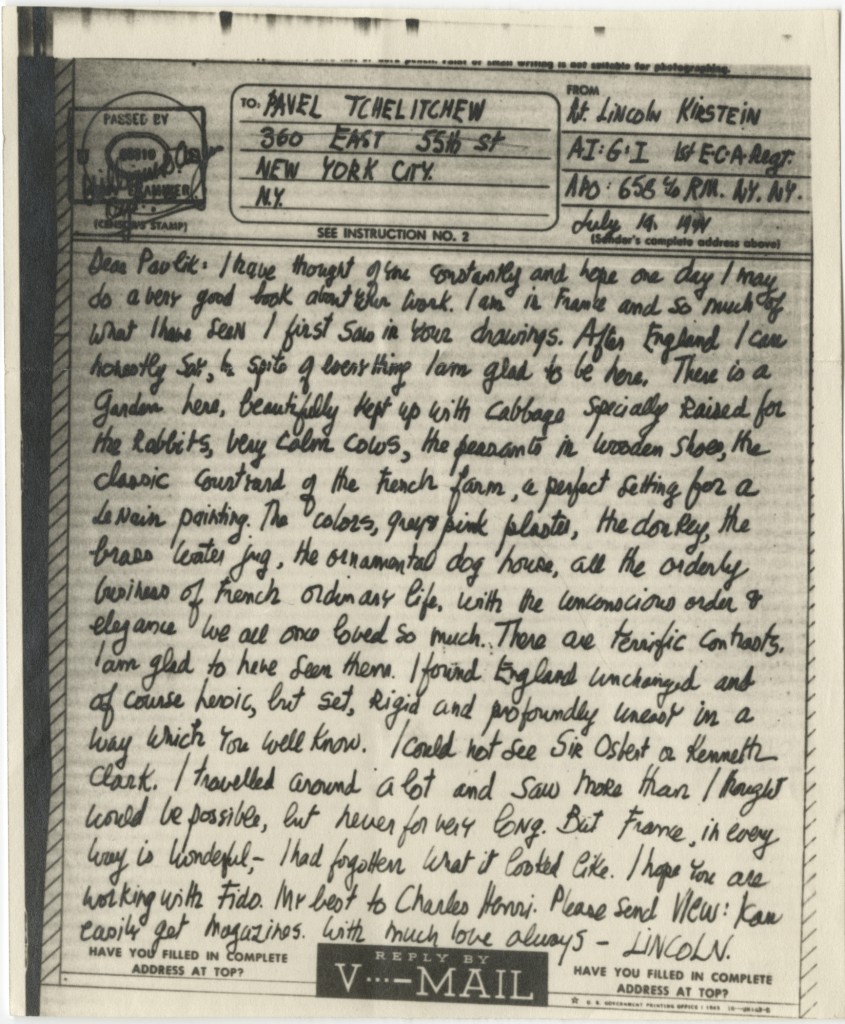 small writing is not suitable for photographing.
PASSED BY
EXAMINER
(CENSOR'S STAMP)
TO: PAVEL TCHELITCHEW
360 EAST 55th St
NEW YORK CITY.
N.Y.
SEE INSTRUCTION NO. 2
FROM
Pvt. LINCOLN KIRSTEIN
APO: 658 % P.M. N.Y. N.Y.
July 19.
(Sender's complete address above)
Dear Pavlik: I have thought of you constantly and hope one day I may
do a very good book about your work. I am in France and so much of
what I have seen I first saw in your drawings. After England I can
honestly say, in spite of everything I am glad to be here. There is a
Garden here, beautifully kept up with cabbage specially raised for
the Rabbits, very calm cows, the peasants in wooden shoes, the
classic courtyard of the French farm, a perfect setting for a
Le Nain painting. The colors, greys pink plaster, the donkey, the
brass water jug, the ornamental dog house, all the orderly
business of French ordinary life, with the unconscious order &
elegance we all once loved so much. There are terrific contrasts.
I am glad to have seen them. I found England unchanged and
of course heroic, but set, rigid and profoundly uneasy in a
way which you well know. I could not see Sir Osbert or Kenneth
Clark. I travelled around a lot and saw more than I thought
would be possible, but never for very long. But France, in every
way is wonderful,- I had forgotten what it looked like. I hope you are
working with Fido. My best to Charles Henri. Please send VIEW: I can
easily get magazines. With much love always - LINCOLN.
HAVE YOU FILLED IN COMPLETE
ADDRESS AT TOP?
REPLY BY
V···—MAIL
HAVE YOU FILLED IN COMPLETE
ADDRESS AT TOP?
U. S. GOVERNMENT PRINTING OFFICE : 1943